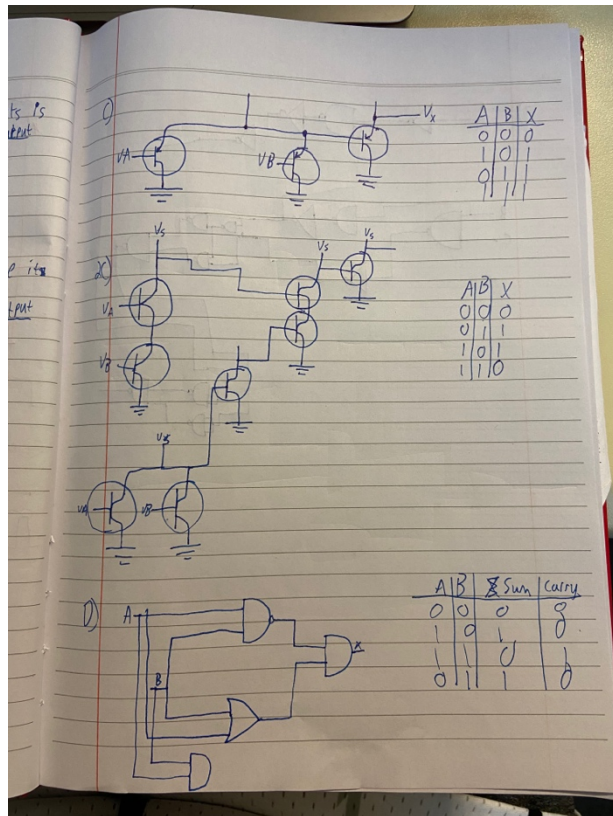 ts is
put
p its
tput
C)
VA
VB
Vx
A B X
0 0 0
1 0 1
0 1 1
1 1 1
2C)
Vs
VA
VB
Vs
Vs
A B X
0 0 0
0 1 1
1 0 1
1 1 0
VA
VB
D)
A
B
X
A B Sum Carry
0 0 0 0
1 0 1 0
1 1 0 1
0 1 1 0